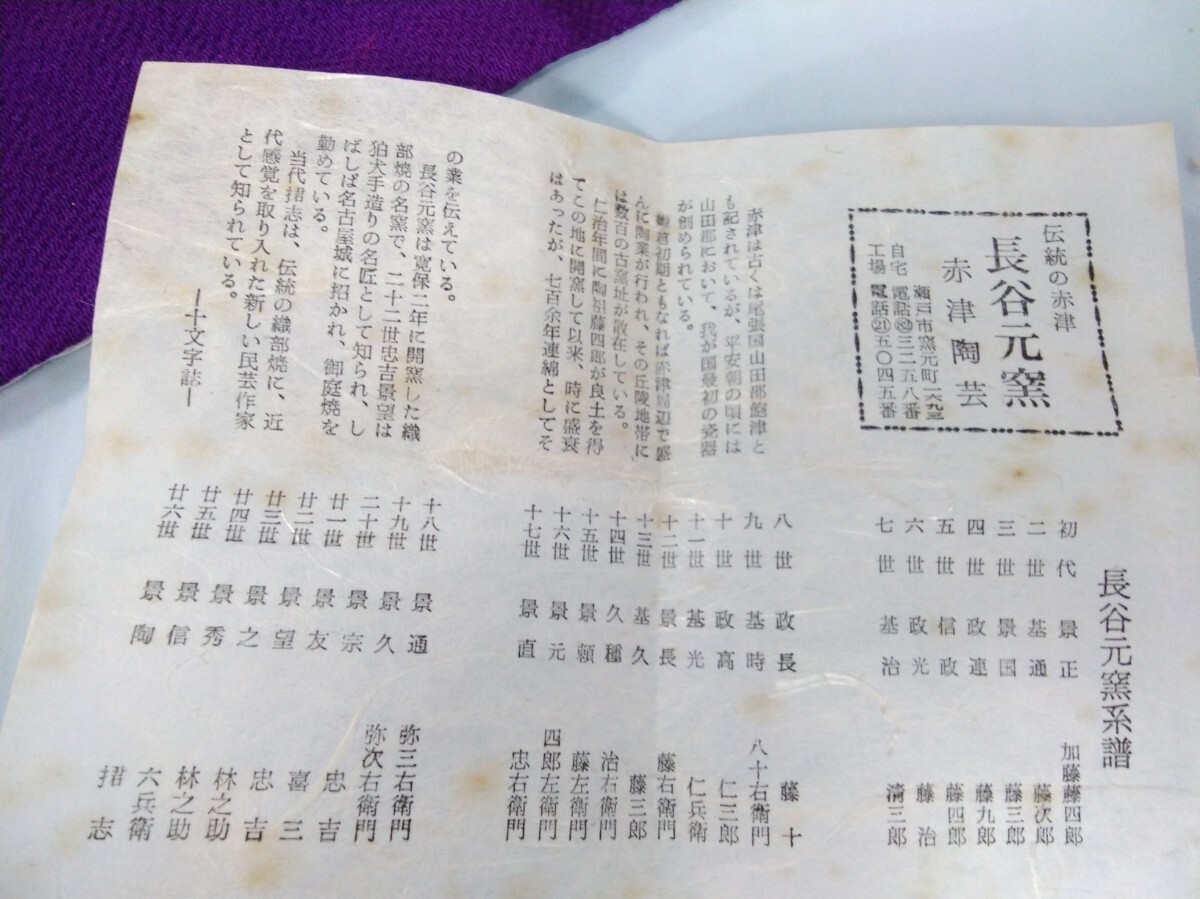 伝統の赤津
長谷元窯
赤津陶芸
瀬戸市窯元町
自宅 電話82三二五八番
工場 電話21五〇四五番
赤津は古くは尾張国山田郡飽津と
も記されているが、平安朝の頃には
山田郡において、我が国最初の瓷器
が創められている。
初期ともなれば赤津周辺で盛
んに陶業が行われ、その丘陵地帯に
は数百の古窯址が散在している。
仁治年間に陶祖藤四郎が良土を得
てこの地に開窯して以来、時に盛衰
はあったが、七百余年連綿としてそ
の業を伝えている。
長谷元窯は寛保二年に開窯した織
部焼の名窯で、二十二世忠吉景望は
狛犬手造りの名匠として知られ、し
ばしば名古屋城に招かれ、御庭焼を
勤めている。
当代志は、伝統の織部焼に、近
代感覚を取り入れた新しい民芸作家
として知られている。
―十文字誌―
長谷元窯系譜
初代 景正 加藤藤四郎
二世 基通 藤次郎
三世 景国 藤三郎
四世 政連 藤九郎
五世 信政 藤四郎
六世 政光 藤治
七世 基治 清三郎
八世 政長 藤十
九世 基時 八十右衛門
十世 政高 仁三郎
十一世 基光 仁兵衛
十二世 景長 藤右衛門
十三世 基久 藤三郎
十四世 久種 治右衛門
十五世 景頼 藤左衛門
十六世 景元 四郎左衛門
十七世 景直 忠右衛門
十八世 景通 弥三右衛門
十九世 景久 弥次右衛門
二十世 景宗 忠吉
廿一世 景友 喜三
廿二世 景望 忠吉
廿三世 景之 林之助
廿四世 景秀 林之助
廿五世 景信 六兵衛
廿六世 景陶 志